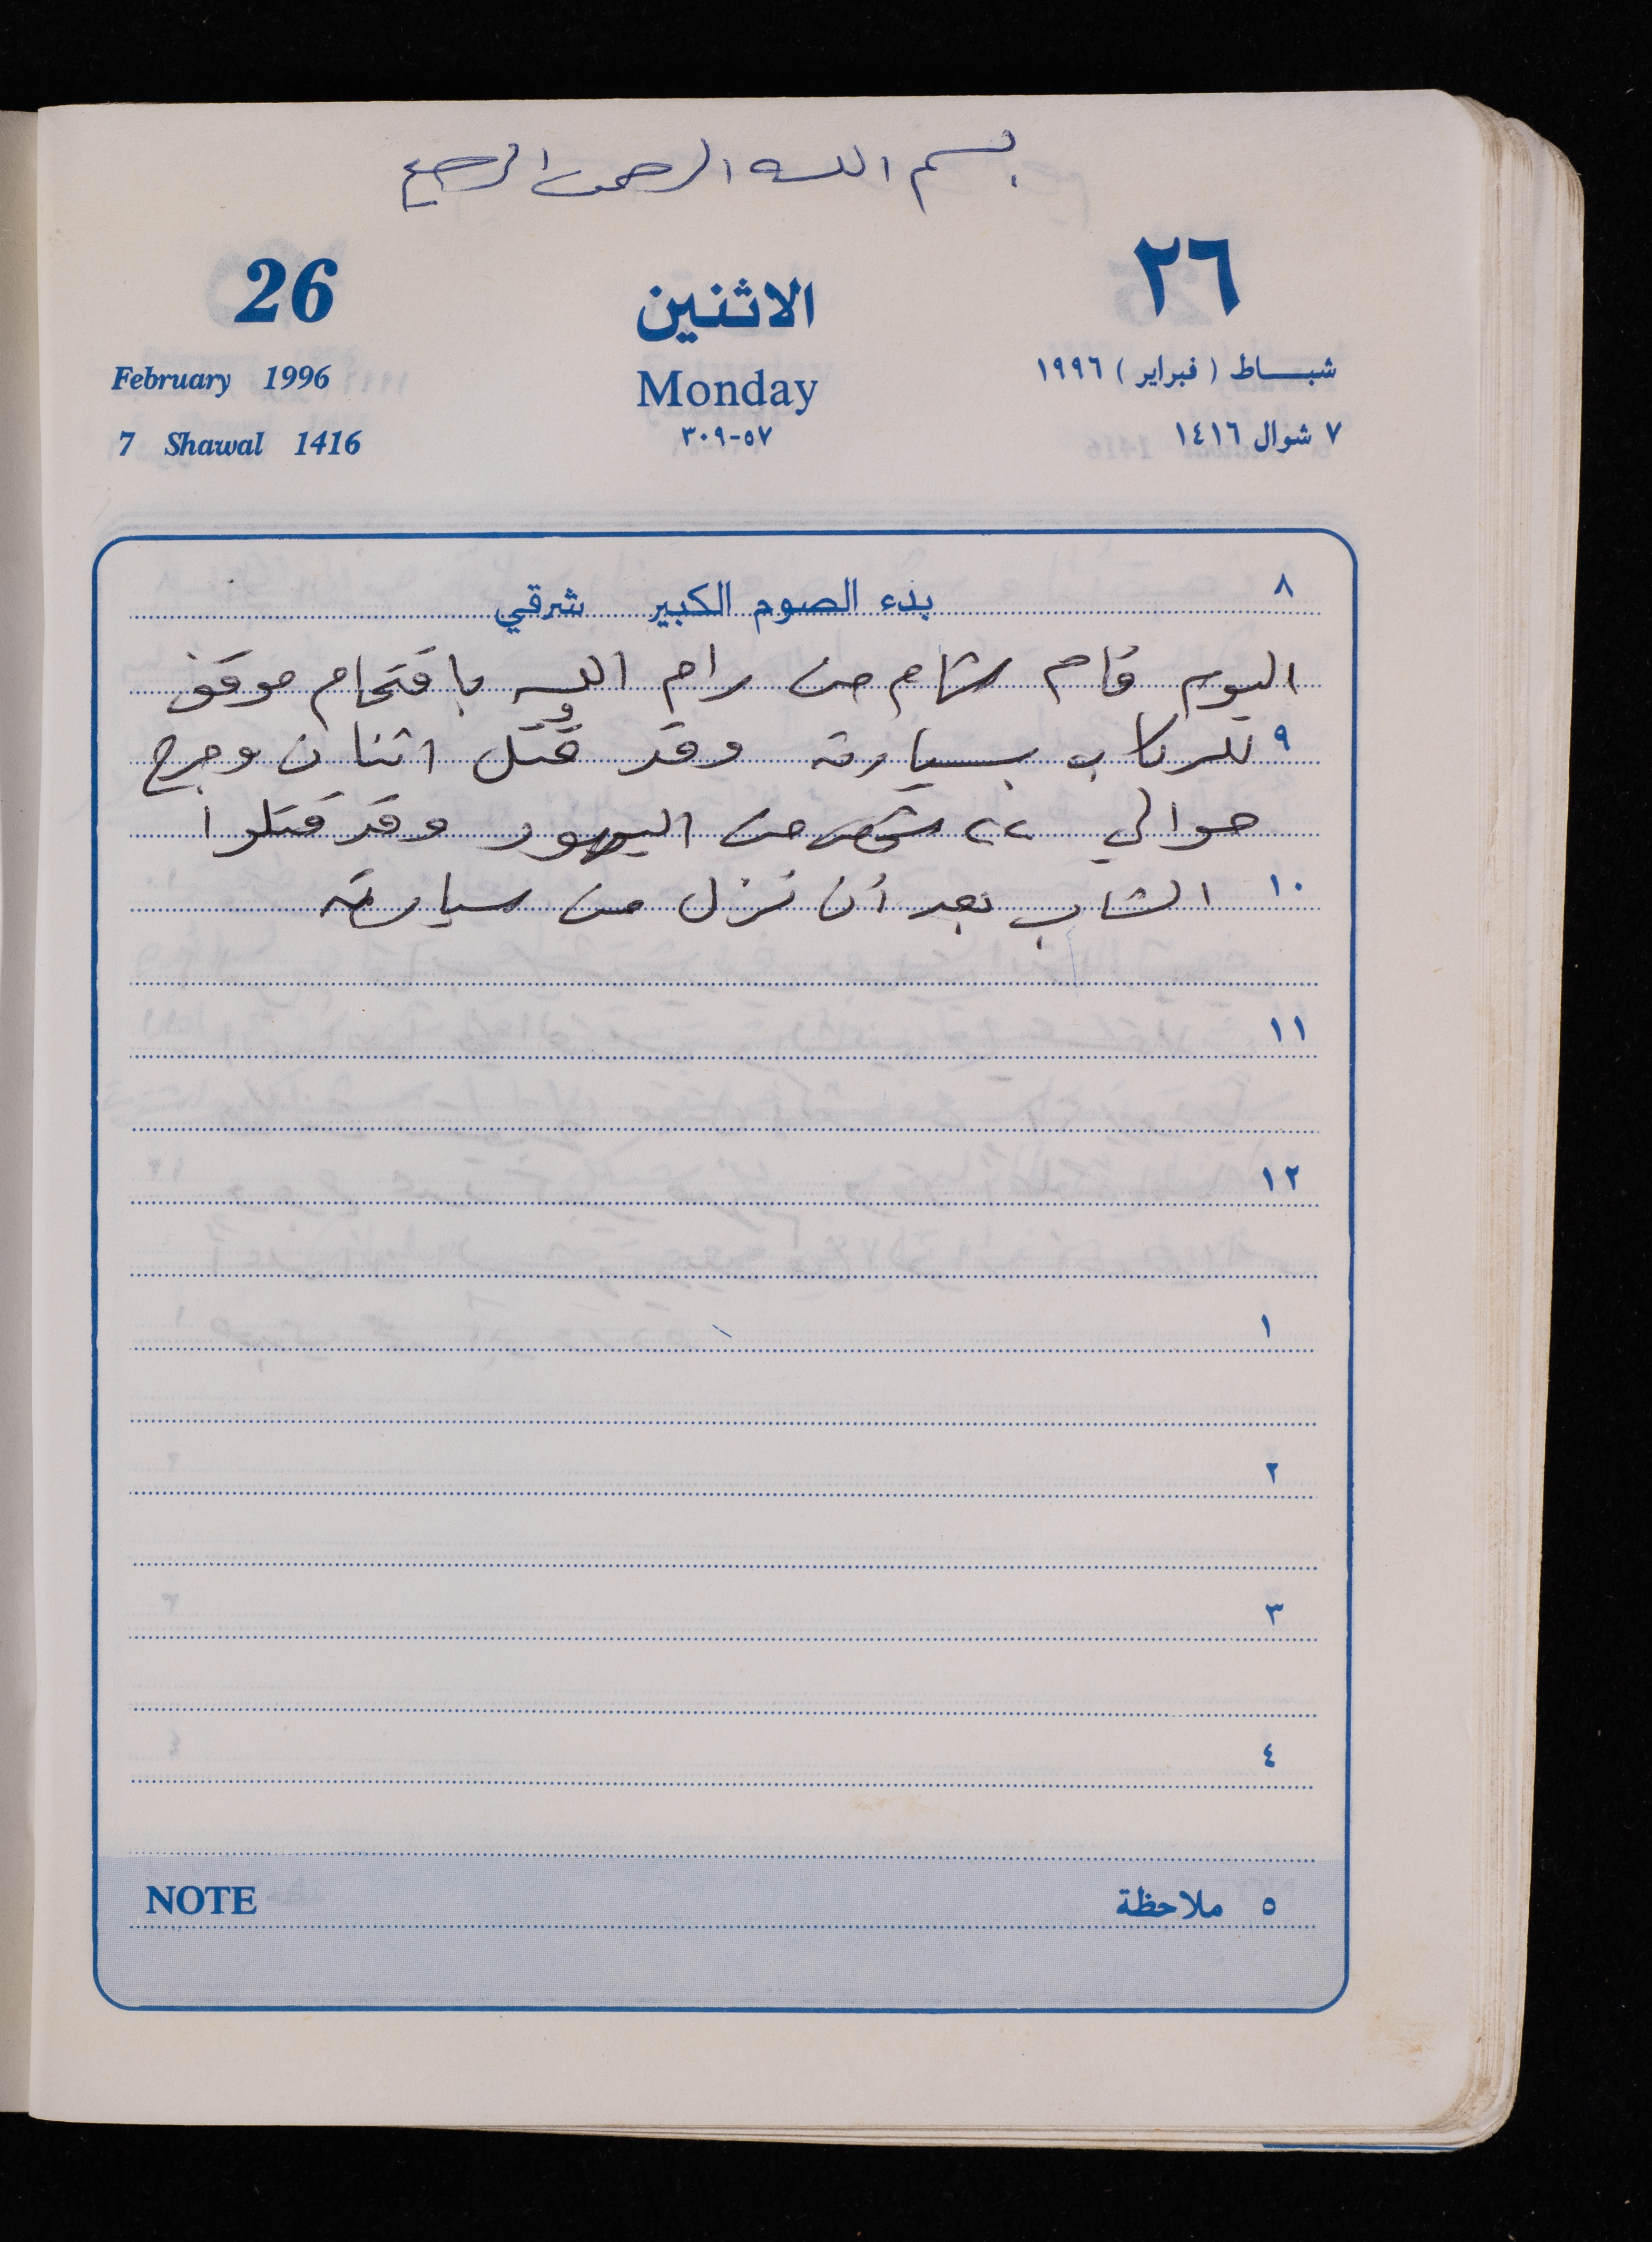 بسم الله الرحمن الرحيم
26
الاثنين
٢٦
February 1996
Monday
شبـــاط ( فبراير ) ١٩٩٦
7 Shawal 1416
٣٠٩-٥٧
٧ شوال ١٤١٦
٨ بدء الصوم الكبير شرقي
اليوم قام شاب من رام الله باقتحام موقف
٩ للركاب بسيارته وقد قُتل اثنان وجرح
حوالي ٢٢ شخص من اليهود وقد قتلوا
١٠ الشاب بعد أن نزل من سيارته
١١
١٢
١
٢
٣
٤
NOTE ٥ ملاحظة